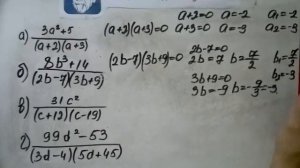 а) 3a²+5 / (a+2)(a+3) (a+2)(a+3)=0 a+2=0 a=-2 a₁=-2
a+3=0 a=-3 a₂=-3
б) 8b³+14 / (2b-7)(3b+9) (2b-7)(3b+9)=0 2b-7=0
2b=7 b=7/2 b₁=7/2
3b+9=0 b₂=-3
3b=-9 b=-9/3=-3
в) 31c² / (c+12)(c-19)
г) 99d²-53 / (3d-4)(5d+45)